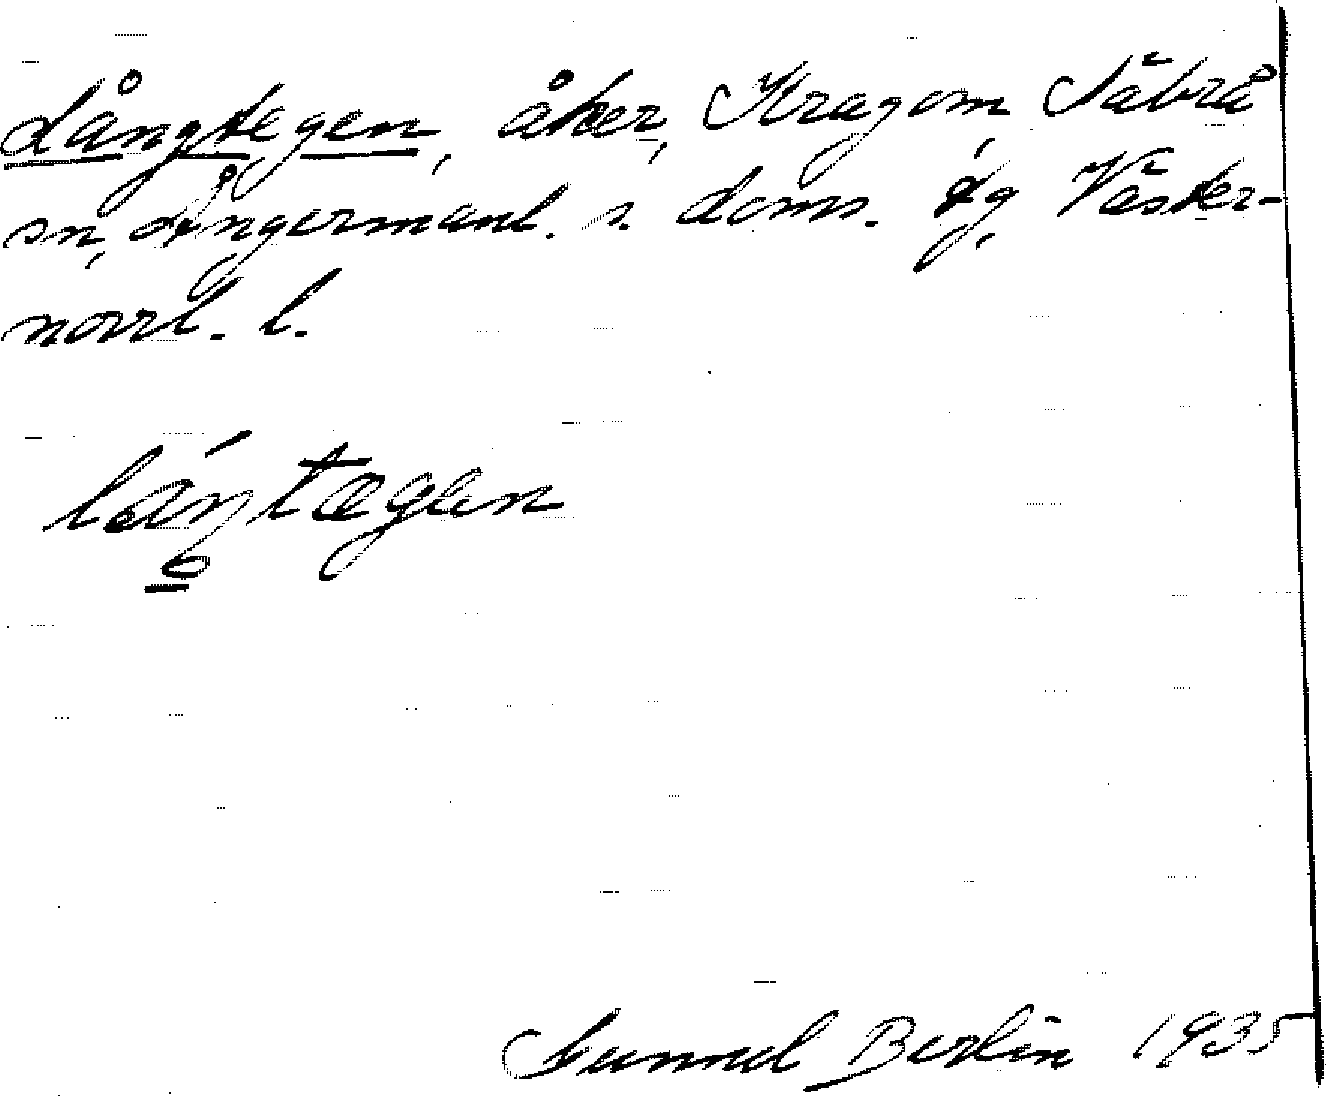 Långtegen, åker, Kragom, Säbrå
sn, Ångermanl. s. doms. tg, Väster-
norrl. l.
lá̱ŋtægen
Gunnel Berlin 1935